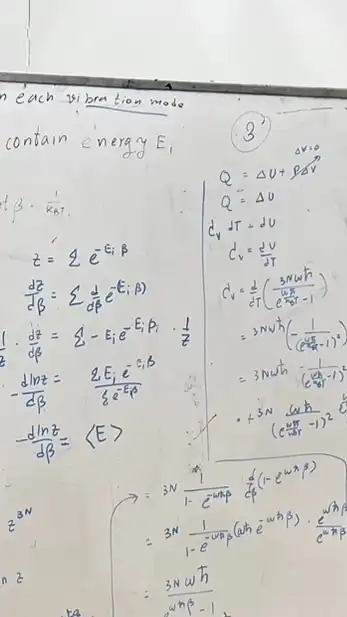 n each vibration mode
contain energy E,
β = 1/KBT
Z = Σ e^-Ei β
dz/dβ = Σ d/dβ e^-Eiβ)
1/z · dz/dβ = Σ -Ei e^-Ei βi · 1/z
-dlnz/dβ = ΣEi e^-Eiβ / Σ e^-Eiβ
-dlnz/dβ = ⟨E⟩
z^3N
n z
3
ΔV=0
Q = ΔU + PΔV
Q = ΔU
Cv dT = dU
Cv = dU/dT
Cv = d/dT (3Nωħ / e^ωħ/KBT - 1)
= 3Nωħ (- 1 / (e^ωħ/KBT - 1)²
= 3Nωħ - 1 / (e^ωħ/KBT - 1)²
= +3N ωħ / (e^ωħ/KBT - 1)² e
= 3N 1 / 1 - e^-ωħβ d/dβ (1 - e^-ωħβ)
= 3N 1 / 1 - e^-ωħβ (ωħ e^-ωħβ) · e^ωħβ / e^ωħβ
= 3Nωħ / e^ωħβ - 1